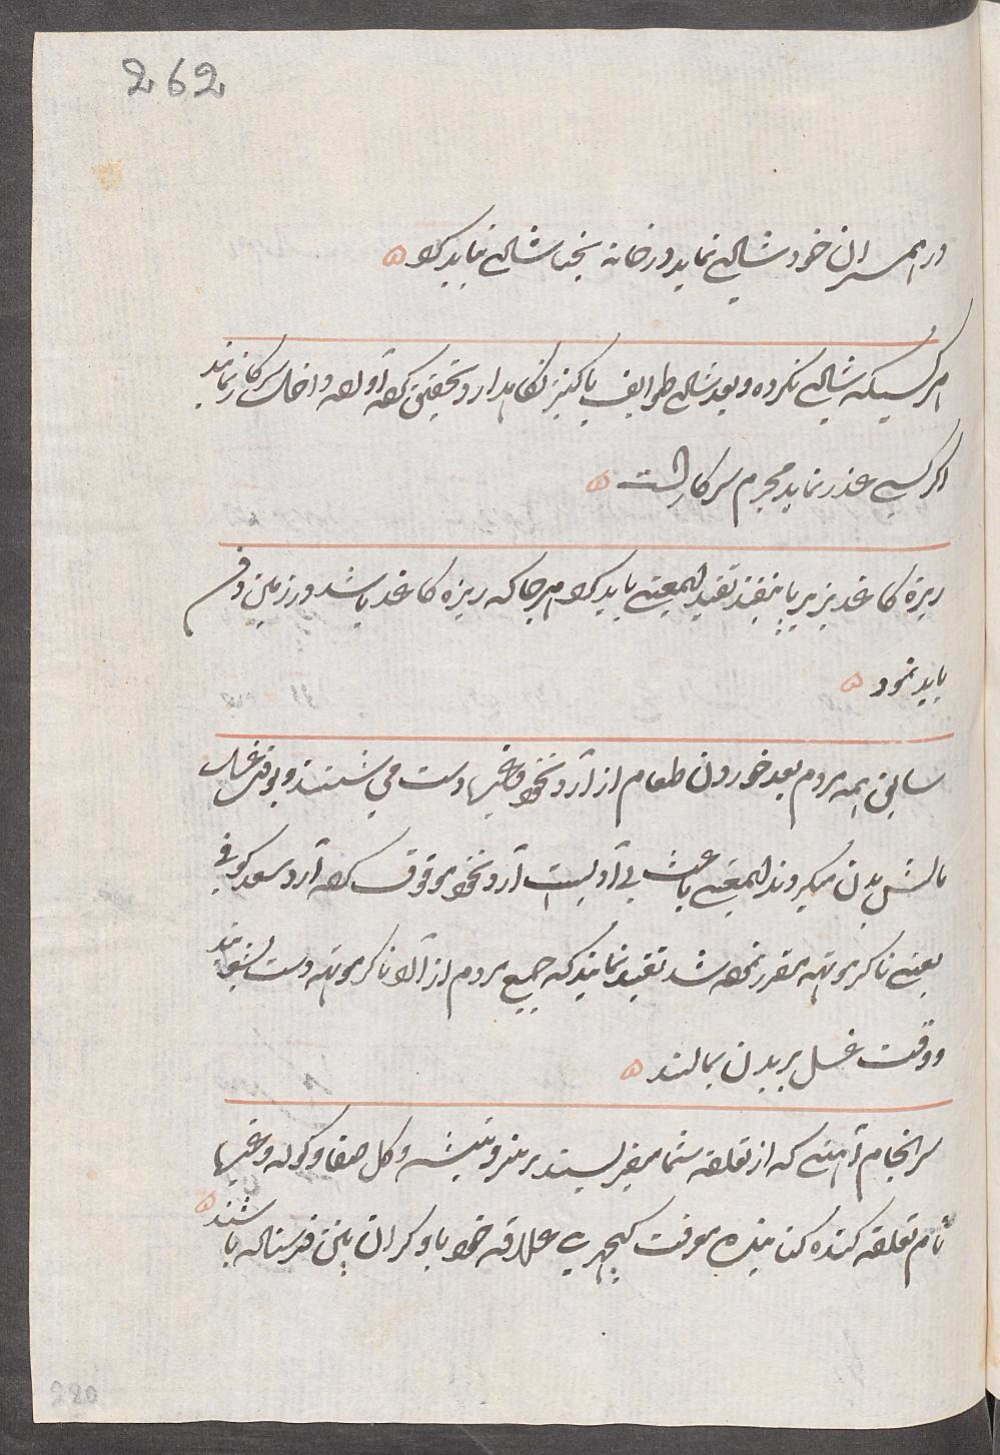 262
در همسران خود شادی نماید در خانه نجبا شادی نباید کرد
هر کسیکه شادی نکرده و بعد شادی طوایف یا کنیز نگاهدارد تحقیق کرده آورده داخل سرکار نمایند
اگر کسی عذر نماید مجرم سرکار است
ریزه کاغذ بزیر پا نیفتد تقید اینمعنی باید کرد هر جا که ریزه کاغذ باشد در زمین دفن
باید نمود
سابق همه مردم بعد خوردن طعام از آرد نخود وغیره دست می شستند و بوقت غسل
مالش بدن میکردند اینمعنی باعث بی آبیست آرد نخود موقوف کرده آرد سعد کوفی
یعنی ناکرموتهه مقرر نموده شد تقید نمایند که جمیع مردم از آرد ناکرموتهه دست بشویند
و وقت غسل بر بدن بمالند
سرانجام آهنی که از تعلقه شما میفرستند تبر و تیشه و کل صفا و کوله وغیره
نام تعلقه کنده کنانیده معرفت کچهری علاقه خود باوکران پتن فرستاده باشند
280